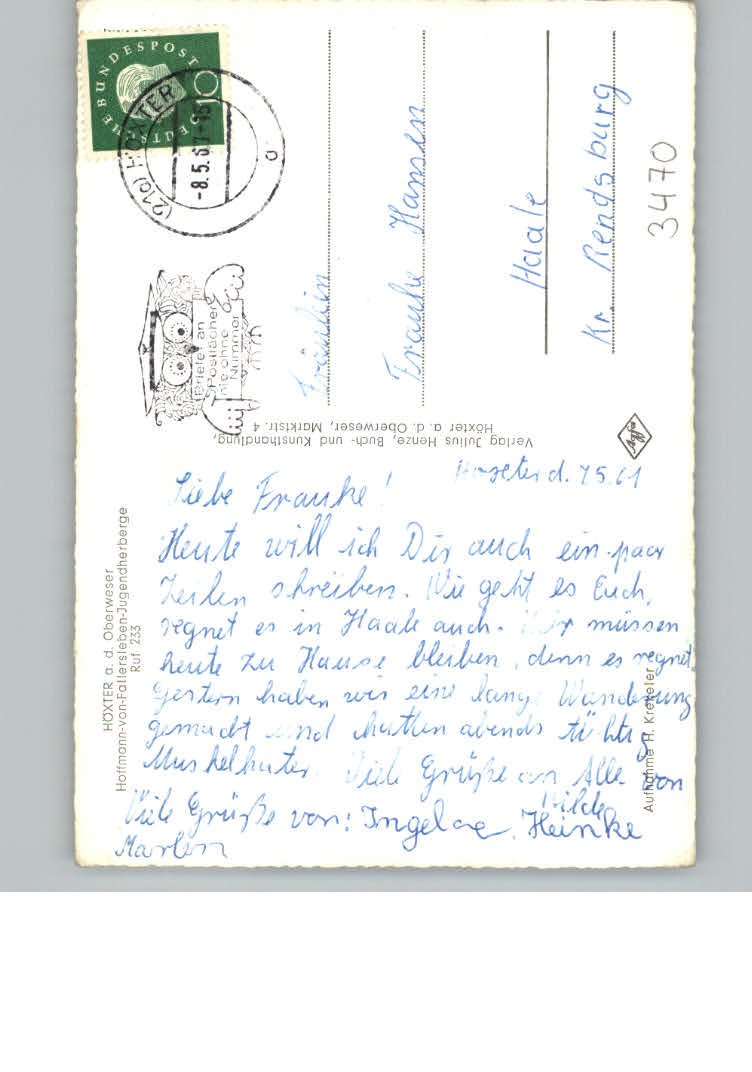 DEUTSCHE BUNDESPOST
(21a) HÖXTER
-8.5.61-15
Briefe an
Postfächer
nie ohne
Nummer
Fräulein
Frauke Hansen
Haale
Kr. Rendsburg
3470
Verlag Julius Henze, Buch- und Kunsthandlung,
Höxter a. d. Oberweser, Marktstr. 4
Agfa
HÖXTER a. d. Oberweser
Hoffmann-von-Fallersleben-Jugendherberge
Ruf 233
Aufnahme H. Krekeler
Höxter d. 7.5.61
Liebe Frauke!
Heute will ich Dir auch ein paar
Zeilen schreiben. Wie geht es Euch,
regnet es in Haale auch. Wir müssen
heute zu Hause bleiben, denn es regnet.
Gestern haben wir eine lange Wanderung
gemacht und hatten abends tüchtig
Muskelkater. Viele Grüße an Alle von
Hilde
Viele Grüße von: Ingelore, Heinke
Marlen